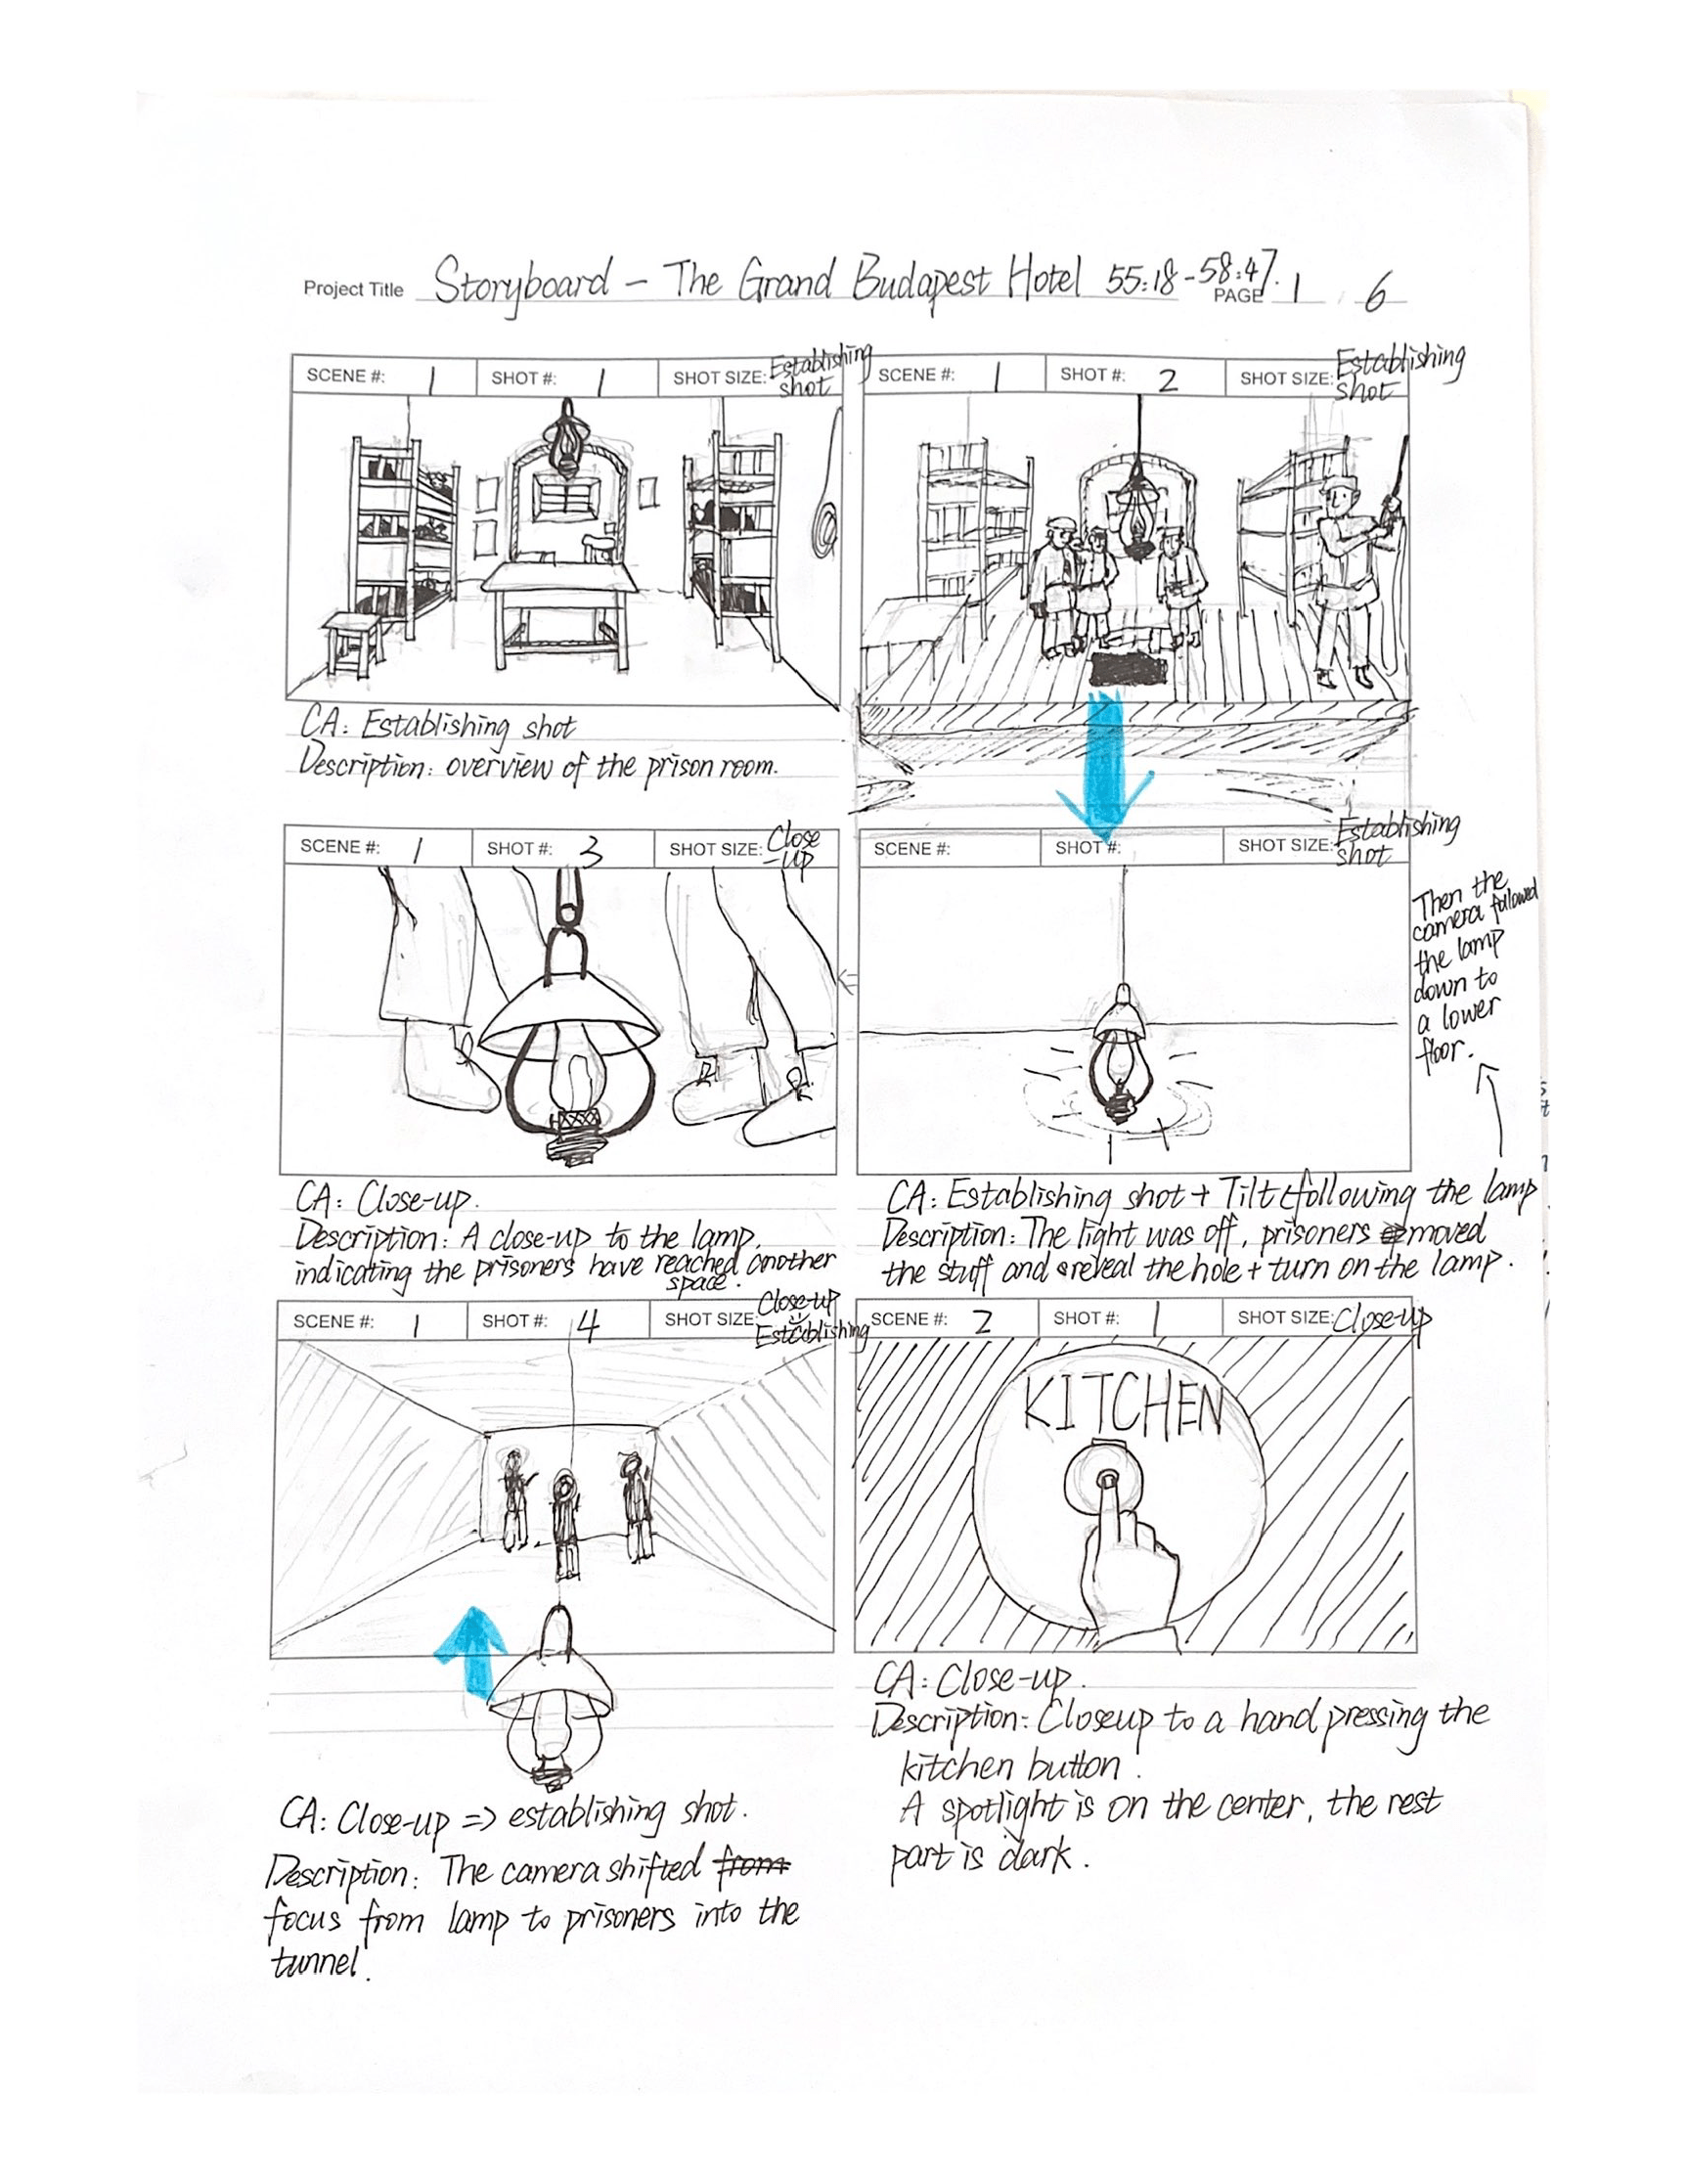 Project Title Storyboard - The Grand Budapest Hotel 55:18-58:47. PAGE 1 6
SCENE #: 1 SHOT #: 1 SHOT SIZE: Establishing
shot
CA: Establishing shot
Description: overview of the prison room.
SCENE #: 1 SHOT #: 2 SHOT SIZE: Establishing
shot
SCENE #: 1 SHOT #: 3 SHOT SIZE: Close
-up
CA: Close-up.
Description: A close-up to the lamp.
indicating the prisoners have reached another
space.
SCENE #: SHOT #: SHOT SIZE: Establishing
shot
Then the
camera followed
the lamp
down to
a lower
floor.
CA: Establishing shot + Tilt following the lamp
Description: The light was off, prisoners moved
the stuff and reveal the hole + turn on the lamp.
SCENE #: 1 SHOT #: 4 SHOT SIZE: Close-up
Establishing
CA: Close-up => establishing shot.
Description: The camera shifted from
focus from lamp to prisoners into the
tunnel.
SCENE #: 2 SHOT #: 1 SHOT SIZE: Close-up
KITCHEN
CA: Close-up.
Description: Closeup to a hand pressing the
kitchen button.
A spotlight is on the center, the rest
part is dark.